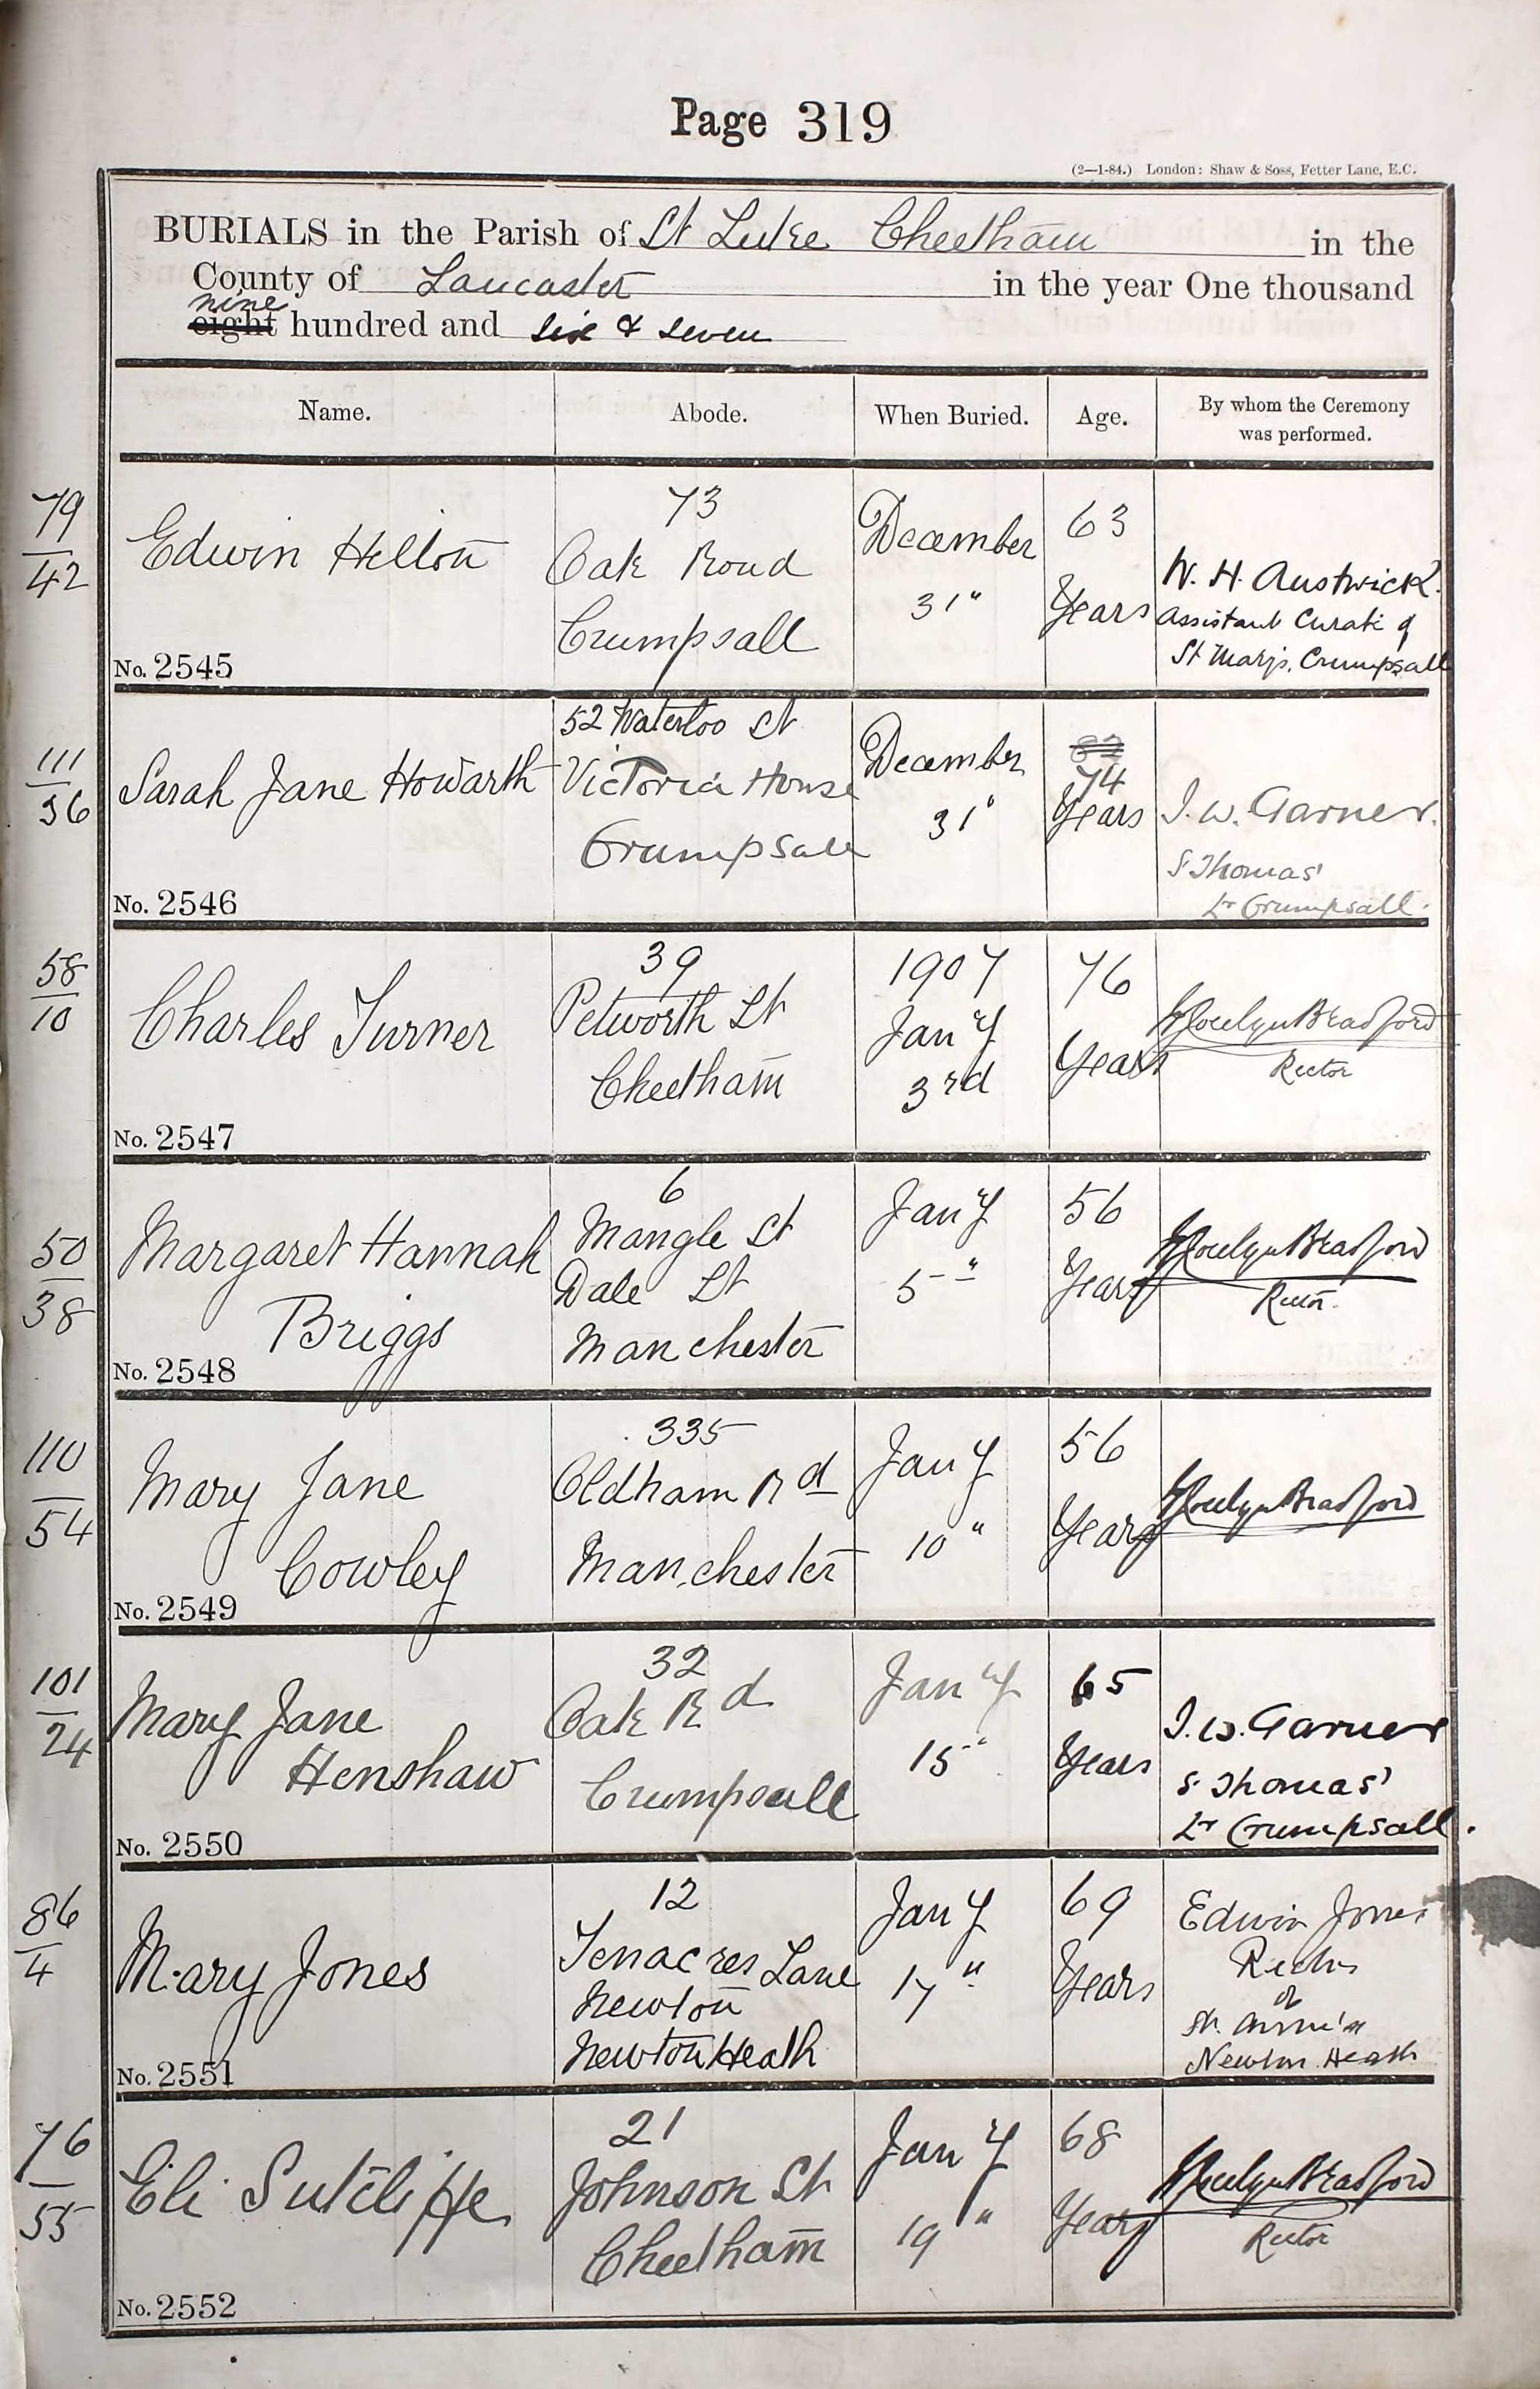 Page 319
(2—1-84.) London: Shaw & Sons, Fetter Lane, E.C.
BURIALS in the Parish of St Luke Cheetham in the
County of Lancaster in the year One thousand
nine
eight hundred and six & seven
Name. Abode. When Buried. Age. By whom the Ceremony was performed.
79
42
Edwin Helton
No. 2545
73
Oak Road
Crumpsall
December
31"
63
Years
W. H. Austwick.
Assistant Curate of
St Mary's, Crumpsall
111
36
Sarah Jane Howarth
No. 2546
52 Waterloo St
Victoria House
Crumpsall
December
31"
74
Years
J. W. Garner.
S Thomas'
Lr Crumpsall.
58
10
Charles Turner
No. 2547
39
Petworth St
Cheetham
1907
Jany
3rd
76
Years
Jocelyn Bradford
Rector
50
38
Margaret Hannah
Briggs
No. 2548
6
Mangle St
Dale St
Manchester
Jany
5"
56
Years
Jocelyn Bradford
Rector
110
54
Mary Jane
Cowley
No. 2549
335
Oldham Rd
Manchester
Jany
10"
56
Years
Jocelyn Bradford
101
24
Mary Jane
Henshaw
No. 2550
32
Oak Rd
Crumpsall
Jany
15"
65
Years
J. W. Garner
S Thomas'
Lr Crumpsall.
86
4
Mary Jones
No. 2551
12
Tenacres Lane
Newton
Newton Heath
Jany
17"
69
Years
Edwin Jones
Rector
of
St. Anne's
Newton Heath
76
55
Eli Sutcliffe
No. 2552
21
Johnson St
Cheetham
Jany
19"
68
Years
Jocelyn Bradford
Rector